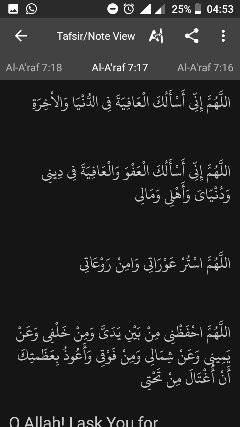 25% 04:53
Tafsir/Note View
Al-A'raf 7:18 Al-A'raf 7:17 Al-A'raf 7:16
اللَّهُمَّ إِنِّي أَسْأَلُكَ الْعَافِيَةَ فِي الدُّنْيَا وَالْآخِرَةِ
اللَّهُمَّ إِنِّي أَسْأَلُكَ الْعَفْوَ وَالْعَافِيَةَ فِي دِينِي
وَدُنْيَايَ وَأَهْلِي وَمَالِي
اللَّهُمَّ اسْتُرْ عَوْرَاتِي وَآمِنْ رَوْعَاتِي
اللَّهُمَّ احْفَظْنِي مِنْ بَيْنِ يَدَيَّ وَمِنْ خَلْفِي وَعَنْ
يَمِينِي وَعَنْ شِمَالِي وَمِنْ فَوْقِي وَأَعُوذُ بِعَظَمَتِكَ
أَنْ أُغْتَالَ مِنْ تَحْتِي
O Allah! I ask You for